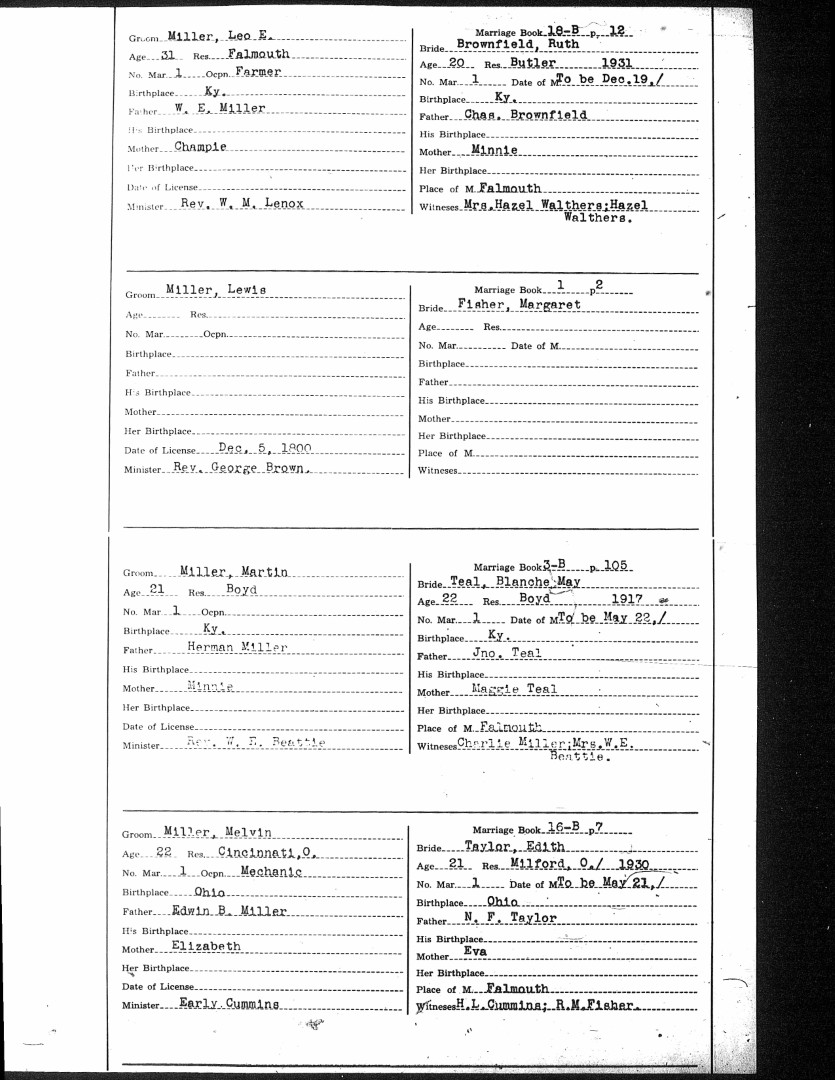 Groom Miller, Leo E.
Age 31 Res. Falmouth
No. Mar 1 Ocpn. Farmer
Birthplace Ky.
Father W. E. Miller
His Birthplace
Mother Champie
Her Birthplace
Date of License
Minister Rev. W. M. Lenox
Marriage Book 18-B p. 12
Bride Brownfield, Ruth
Age 20 Res. Butler 1931
No. Mar. 1 Date of M To be Dec.19,/
Birthplace Ky.
Father Chas. Brownfield
His Birthplace
Mother Minnie
Her Birthplace
Place of M. Falmouth
Witneses Mrs.Hazel Walthers;Hazel
Walthers.
Groom Miller, Lewis
Age Res.
No. Mar. Ocpn.
Birthplace
Father
His Birthplace
Mother
Her Birthplace
Date of License Dec. 5, 1800
Minister Rev. George Brown.
Marriage Book 1 p 2
Bride Fisher, Margaret
Age Res.
No. Mar. Date of M.
Birthplace
Father
His Birthplace
Mother
Her Birthplace
Place of M.
Witneses
Groom Miller, Martin
Age 21 Res. Boyd
No. Mar 1 Ocpn.
Birthplace Ky.
Father Herman Miller
His Birthplace
Mother Minnie
Her Birthplace
Date of License
Minister Rev. W. E. Beattie
Marriage Book 3-B p. 105
Bride Teal, Blanche May
Age 22 Res. Boyd 1917
No. Mar. 1 Date of M To be May 22,/
Birthplace Ky.
Father Jno. Teal
His Birthplace
Mother Maggie Teal
Her Birthplace
Place of M. Falmouth
Witneses Charlie Miller;Mrs.W.E.
Beattie.
Groom Miller, Melvin
Age 22 Res. Cincinnati,O.
No. Mar. 1 Ocpn. Mechanic
Birthplace Ohio
Father Edwin B. Miller
His Birthplace
Mother Elizabeth
Her Birthplace
Date of License
Minister Early Cummins
Marriage Book 16-B p 7
Bride Taylor, Edith
Age 21 Res. Milford, O./ 1930
No. Mar. 1 Date of M To be May 21,/
Birthplace Ohio
Father N. F. Taylor
His Birthplace
Mother Eva
Her Birthplace
Place of M. Falmouth
Witneses H.L.Cummins; R.M.Fisher.